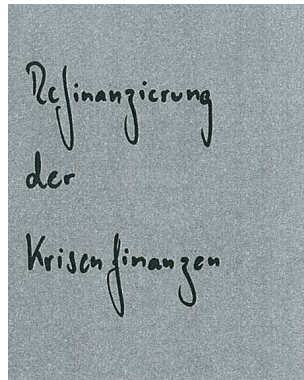 Refinanzierung
der
Krisenfinanzen